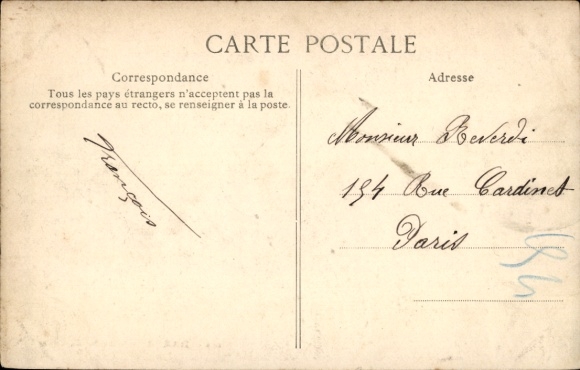 CARTE POSTALE
Correspondance
Tous les pays étrangers n'acceptent pas la
correspondance au recto, se renseigner à la poste.
François
Adresse
Monsieur Reverdi
154 Rue Cardinet
Paris
154